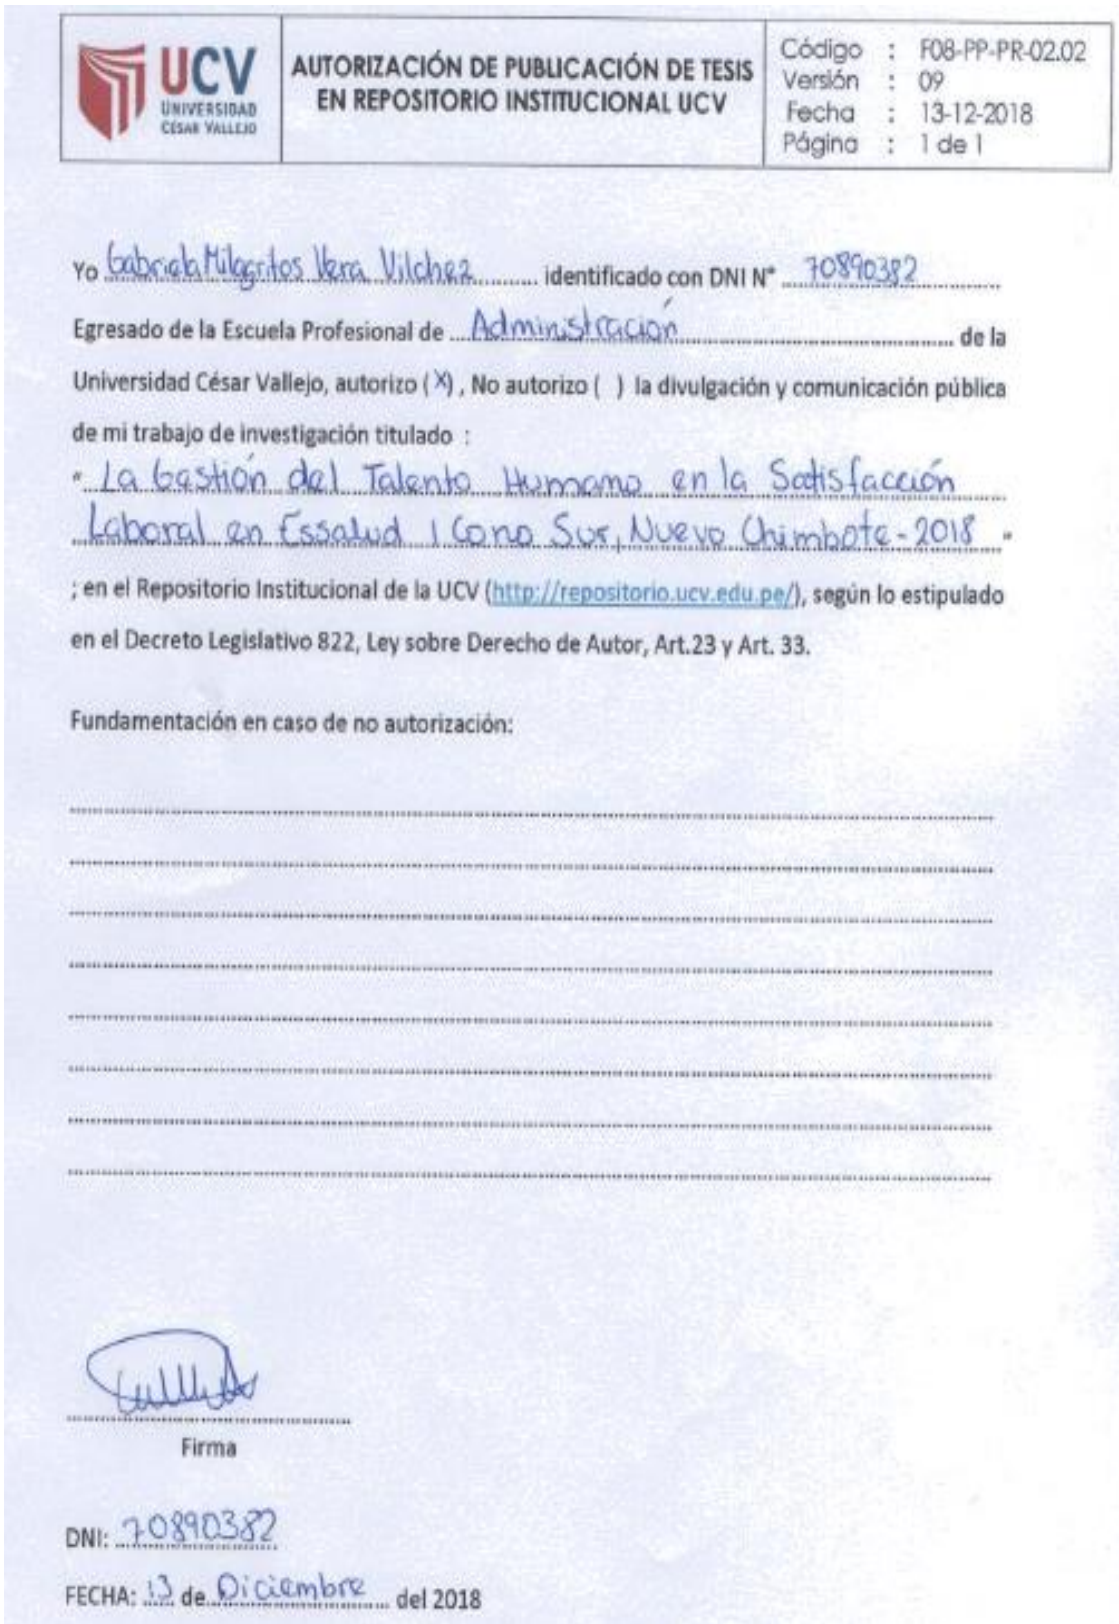 UCV
UNIVERSIDAD
CÉSAR VALLEJO
AUTORIZACIÓN DE PUBLICACIÓN DE TESIS
EN REPOSITORIO INSTITUCIONAL UCV
Código : F08-PP-PR-02.02
Versión : 09
Fecha : 13-12-2018
Página : 1 de 1
Yo Gabriela Milagritos Vera Vilchez identificado con DNI N° 70890382
Egresado de la Escuela Profesional de Administración de la
Universidad César Vallejo, autorizo (X) , No autorizo ( ) la divulgación y comunicación pública
de mi trabajo de investigación titulado :
" La Gestión del Talento Humano en la Satisfacción
Laboral en Essalud I Cono Sur, Nuevo Chimbote - 2018 "
; en el Repositorio Institucional de la UCV (http://repositorio.ucv.edu.pe/), según lo estipulado
en el Decreto Legislativo 822, Ley sobre Derecho de Autor, Art.23 y Art. 33.
Fundamentación en caso de no autorización:
Firma
DNI: 70890382
FECHA: 13 de Diciembre del 2018